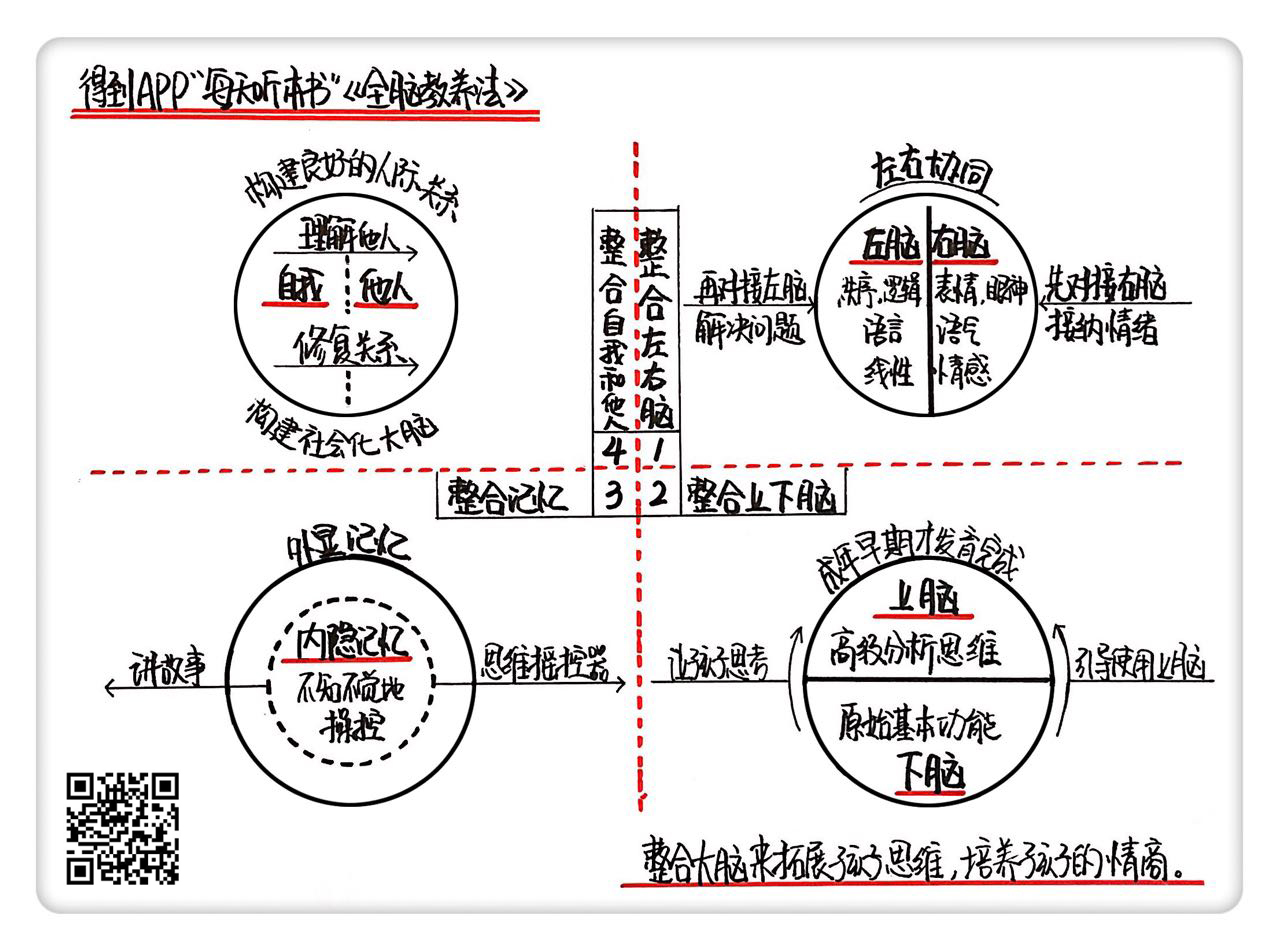 得到APP“每天听本书”《全脑教养法》
构建良好的人际关系
理解他人
自我 他人
修复关系
构建社会化大脑
整合自我和他人
4
整合左右脑
1
左右协同
左脑 右脑
秩序、逻辑 表情、眼神
语言 语气
线性 情感
再对接左脑
解决问题
先对接右脑
接纳情绪
整合记忆 3
2 整合上下脑
外显记忆
内隐记忆
不知不觉地
操控
讲故事
思维摇控器
成年早期才发育完成
上脑
高级分析思维
原始基本功能
下脑
让孩子思考
引导使用上脑
整合大脑来拓展孩子思维，培养孩子的情商。